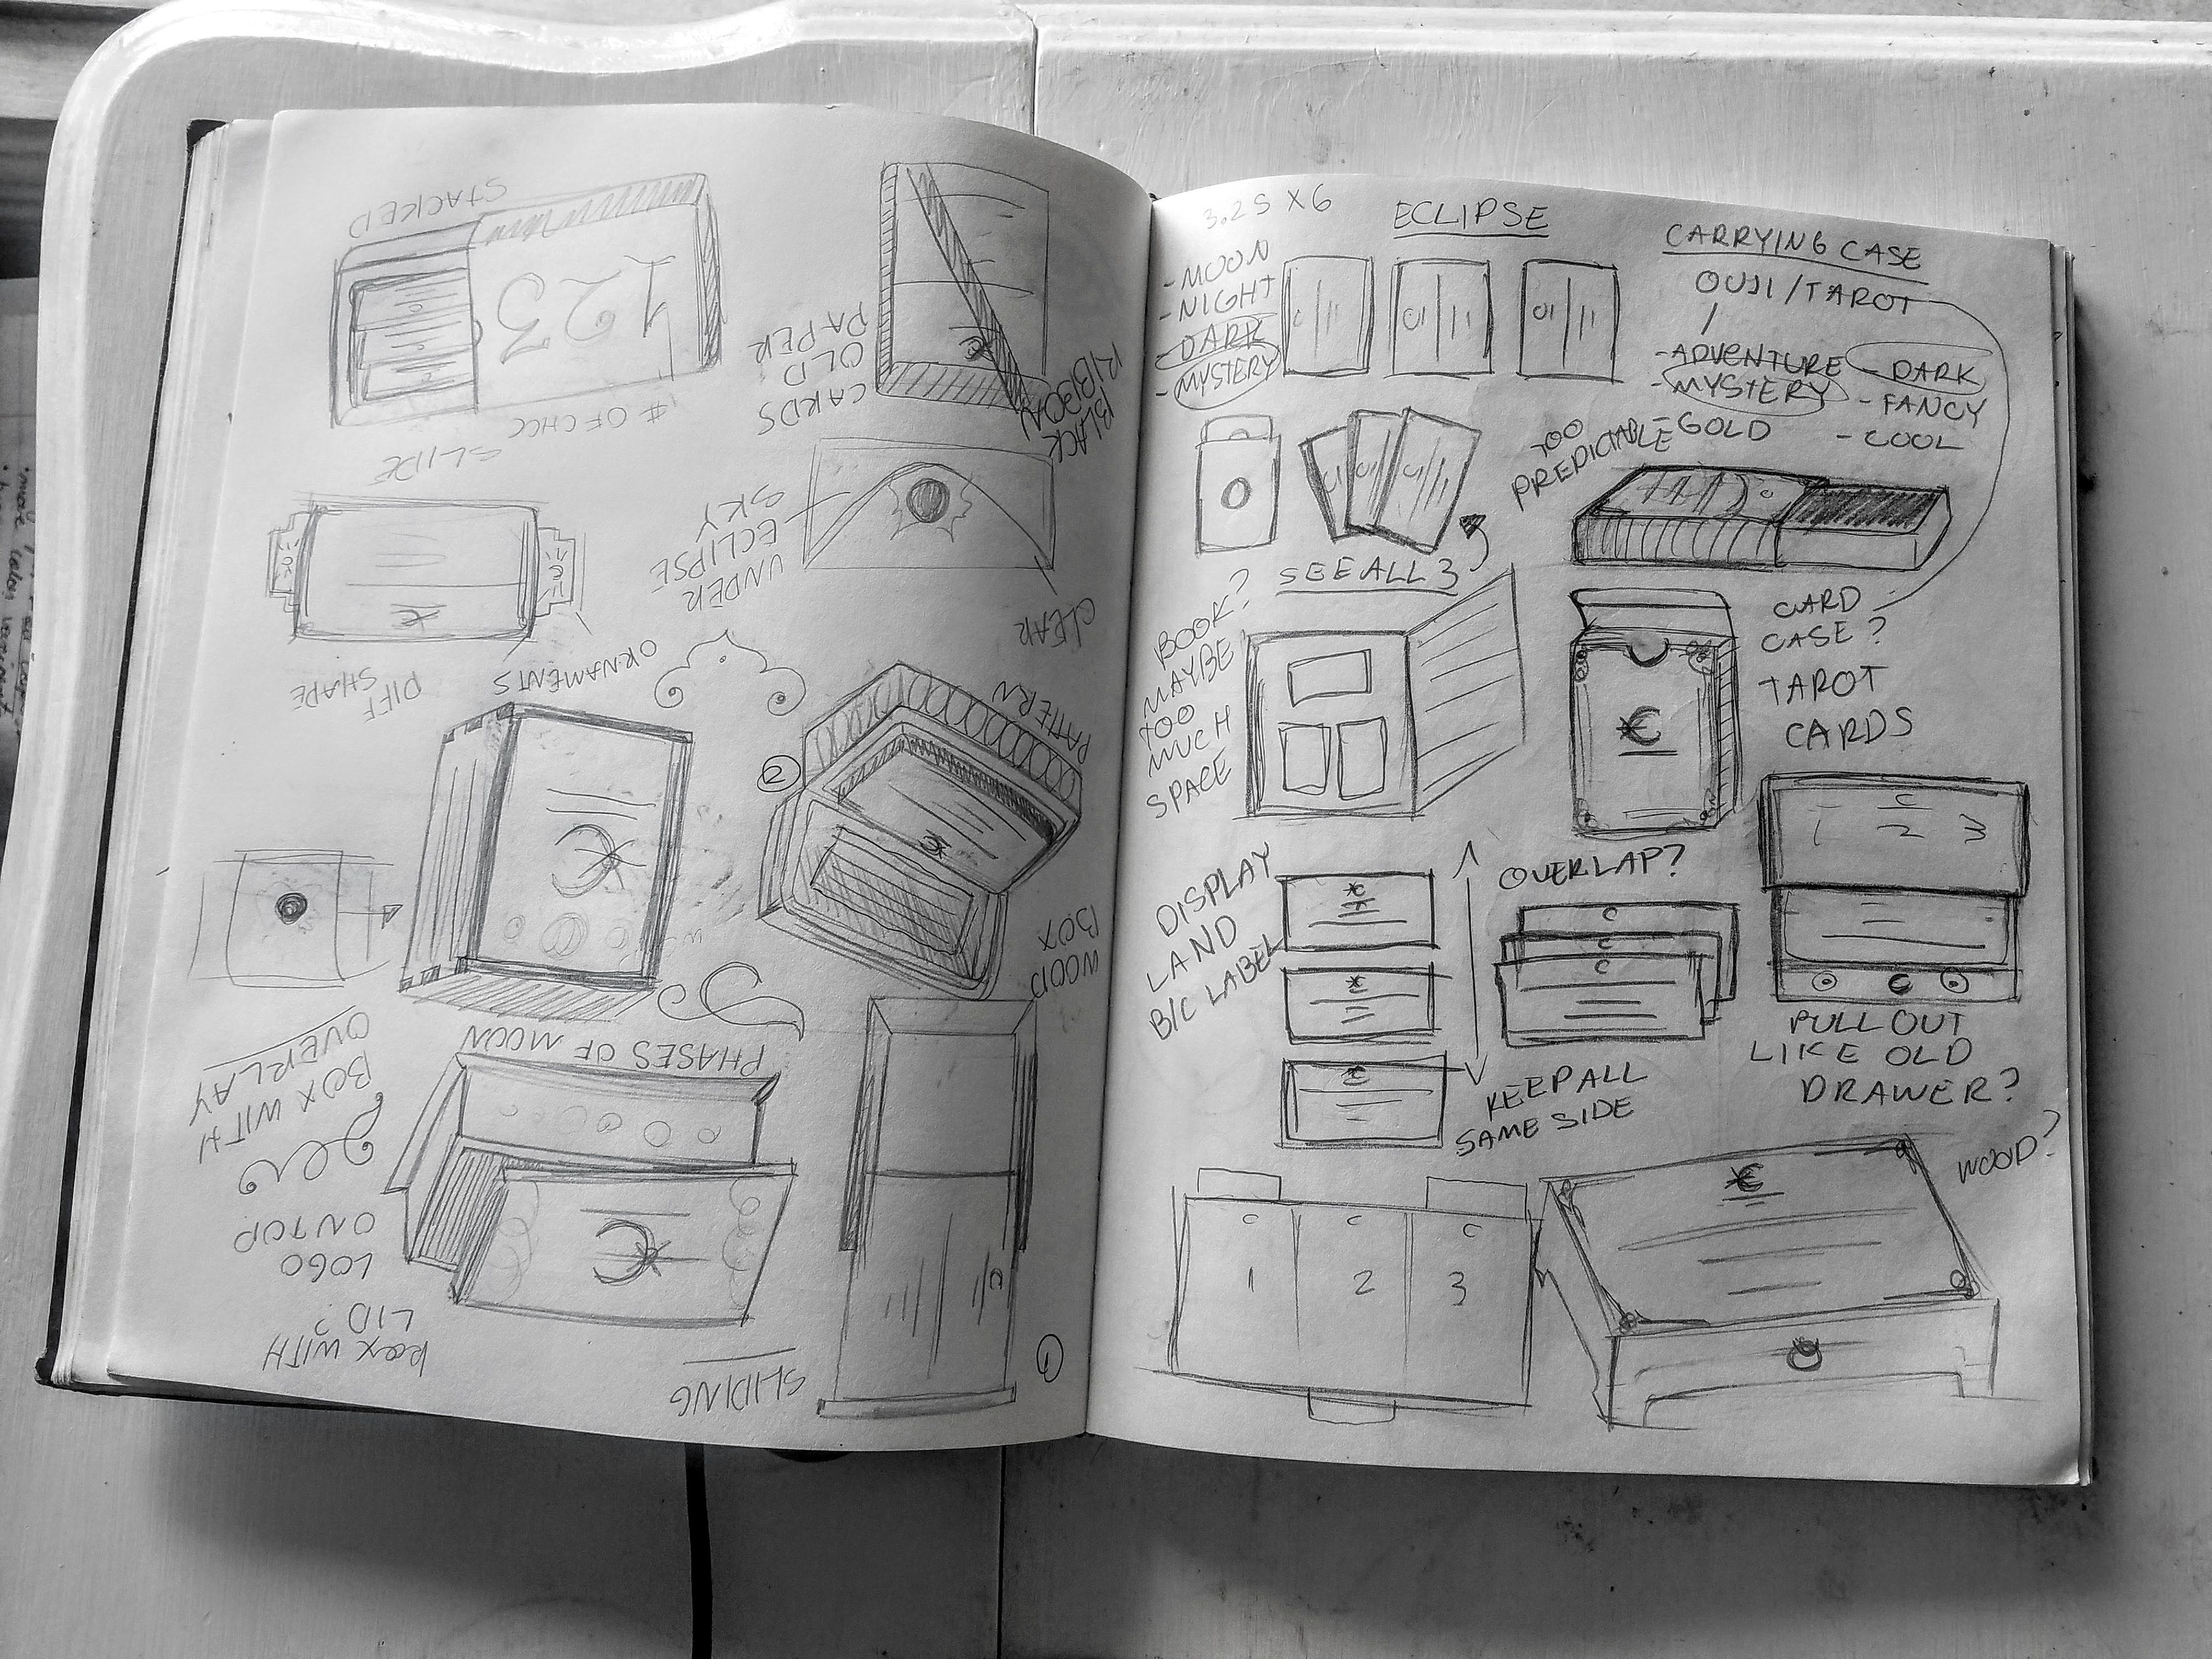 3.25 X 6
ECLIPSE
CARRYING CASE
OUJI/TAROT
- MOON
- NIGHT
- DARK
- MYSTERY
- ADVENTURE
- MYSTERY
- GOLD
- DARK
- FANCY
- COOL
TOO
PREDICTABLE
SEE ALL 3
BOOK?
MAYBE
TOO
MUCH
SPACE
CARD
CASE?
TAROT
CARDS
1 2 3
DISPLAY
LAND
B/C LABEL
OVERLAP?
KEEP ALL
SAME SIDE
PULL OUT
LIKE OLD
DRAWER?
WOOD?
1 2 3
SLIDING
1
BOX WITH
LID?
LOGO
ON TOP
BOX WITH
OVERLAY
PHASES OF MOON
WOOD
BOX
2
PATTERN
ORNAMENTS
DIFF
SHAPE
CLEAR
UNDER
ECLIPSE
SKY
SLIDE
# OF CHOC
123
STACKED
BLACK
RIBBON
CARDS
OLD
PAPER